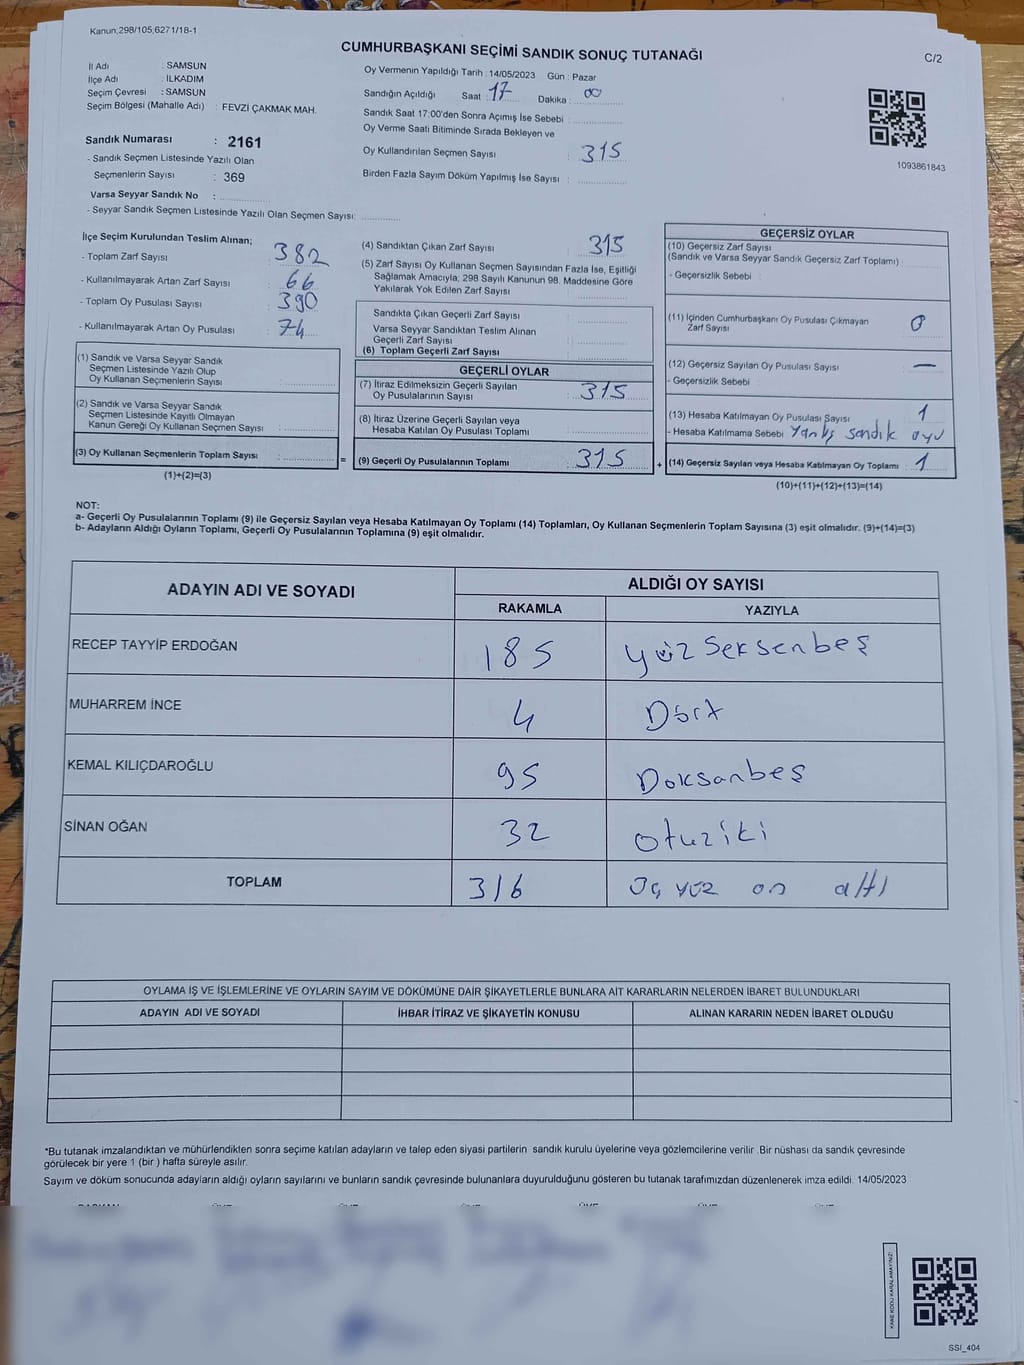 Kanun;298/105,6271/18-1
CUMHURBAŞKANI SEÇİMİ SANDIK SONUÇ TUTANAĞI
C/2
İl Adı : SAMSUN
İlçe Adı : İLKADIM
Seçim Çevresi : SAMSUN
Seçim Bölgesi (Mahalle Adı) : FEVZİ ÇAKMAK MAH.
Sandık Numarası : 2161
- Sandık Seçmen Listesinde Yazılı Olan
Seçmenlerin Sayısı : 369
Varsa Seyyar Sandık No :
- Seyyar Sandık Seçmen Listesinde Yazılı Olan Seçmen Sayısı:
Oy Vermenin Yapıldığı Tarih : 14/05/2023 Gün : Pazar
Sandığın Açıldığı Saat : 17 Dakika : 00
Sandık Saat 17:00'den Sonra Açımış İse Sebebi :
Oy Verme Saati Bitiminde Sırada Bekleyen ve
Oy Kullandırılan Seçmen Sayısı : 315
Birden Fazla Sayım Döküm Yapılmış İse Sayısı :
1093861843
İlçe Seçim Kurulundan Teslim Alınan;
- Toplam Zarf Sayısı : 382
- Kullanılmayarak Artan Zarf Sayısı : 66
- Toplam Oy Pusulası Sayısı : 390
- Kullanılmayarak Artan Oy Pusulası : 74
(1) Sandık ve Varsa Seyyar Sandık
Seçmen Listesinde Yazılı Olup
Oy Kullanan Seçmenlerin Sayısı :
(2) Sandık ve Varsa Seyyar Sandık
Seçmen Listesinde Kayıtlı Olmayan
Kanun Gereği Oy Kullanan Seçmen Sayısı :
(3) Oy Kullanan Seçmenlerin Toplam Sayısı :
(1)+(2)=(3)
=
(4) Sandıktan Çıkan Zarf Sayısı : 315
(5) Zarf Sayısı Oy Kullanan Seçmen Sayısından Fazla İse, Eşitliği
Sağlamak Amacıyla; 298 Sayılı Kanunun 98. Maddesine Göre
Yakılarak Yok Edilen Zarf Sayısı :
Sandıkta Çıkan Geçerli Zarf Sayısı :
Varsa Seyyar Sandıktan Teslim Alınan
Geçerli Zarf Sayısı :
(6) Toplam Geçerli Zarf Sayısı :
GEÇERLİ OYLAR
(7) İtiraz Edilmeksizin Geçerli Sayılan
Oy Pusulalarının Sayısı : 315
(8) İtiraz Üzerine Geçerli Sayılan veya
Hesaba Katılan Oy Pusulası Toplamı :
(9) Geçerli Oy Pusulalarının Toplamı : 315
+
GEÇERSİZ OYLAR
(10) Geçersiz Zarf Sayısı
(Sandık ve Varsa Seyyar Sandık Geçersiz Zarf Toplamı) :
- Geçersizlik Sebebi :
(11) İçinden Cumhurbaşkanı Oy Pusulası Çıkmayan
Zarf Sayısı : 0
(12) Geçersiz Sayılan Oy Pusulası Sayısı : —
- Geçersizlik Sebebi :
(13) Hesaba Katılmayan Oy Pusulası Sayısı : 1
- Hesaba Katılmama Sebebi : Yanlış sandık oyu
(14) Geçersiz Sayılan veya Hesaba Katılmayan Oy Toplamı : 1
(10)+(11)+(12)+(13)=(14)
NOT:
a- Geçerli Oy Pusulalarının Toplamı (9) ile Geçersiz Sayılan veya Hesaba Katılmayan Oy Toplamı (14) Toplamları, Oy Kullanan Seçmenlerin Toplam Sayısına (3) eşit olmalıdır. (9)+(14)=(3)
b- Adayların Aldığı Oyların Toplamı, Geçerli Oy Pusulalarının Toplamına (9) eşit olmalıdır.
ADAYIN ADI VE SOYADI ALDIĞI OY SAYISI
RAKAMLA YAZIYLA
RECEP TAYYİP ERDOĞAN 185 Yüz Seksenbeş
MUHARREM İNCE 4 Dört
KEMAL KILIÇDAROĞLU 95 Doksanbeş
SİNAN OĞAN 32 otuziki
TOPLAM 316 Üç yüz on altı
OYLAMA İŞ VE İŞLEMLERİNE VE OYLARIN SAYIM VE DÖKÜMÜNE DAİR ŞİKAYETLERLE BUNLARA AİT KARARLARIN NELERDEN İBARET BULUNDUKLARI
ADAYIN ADI VE SOYADI İHBAR İTİRAZ VE ŞİKAYETİN KONUSU ALINAN KARARIN NEDEN İBARET OLDUĞU
*Bu tutanak imzalandıktan ve mühürlendikten sonra seçime katılan adayların ve talep eden siyasi partilerin sandık kurulu üyelerine veya gözlemcilerine verilir .Bir nüshası da sandık çevresinde
görülecek bir yere 1 (bir ) hafta süreyle asılır.
Sayım ve döküm sonucunda adayların aldığı oyların sayılarını ve bunların sandık çevresinde bulunanlara duyurulduğunu gösteren bu tutanak tarafımızdan düzenlenerek imza edildi. 14/05/2023
KARE KODU KARALAMAYINIZ!
SSI_404